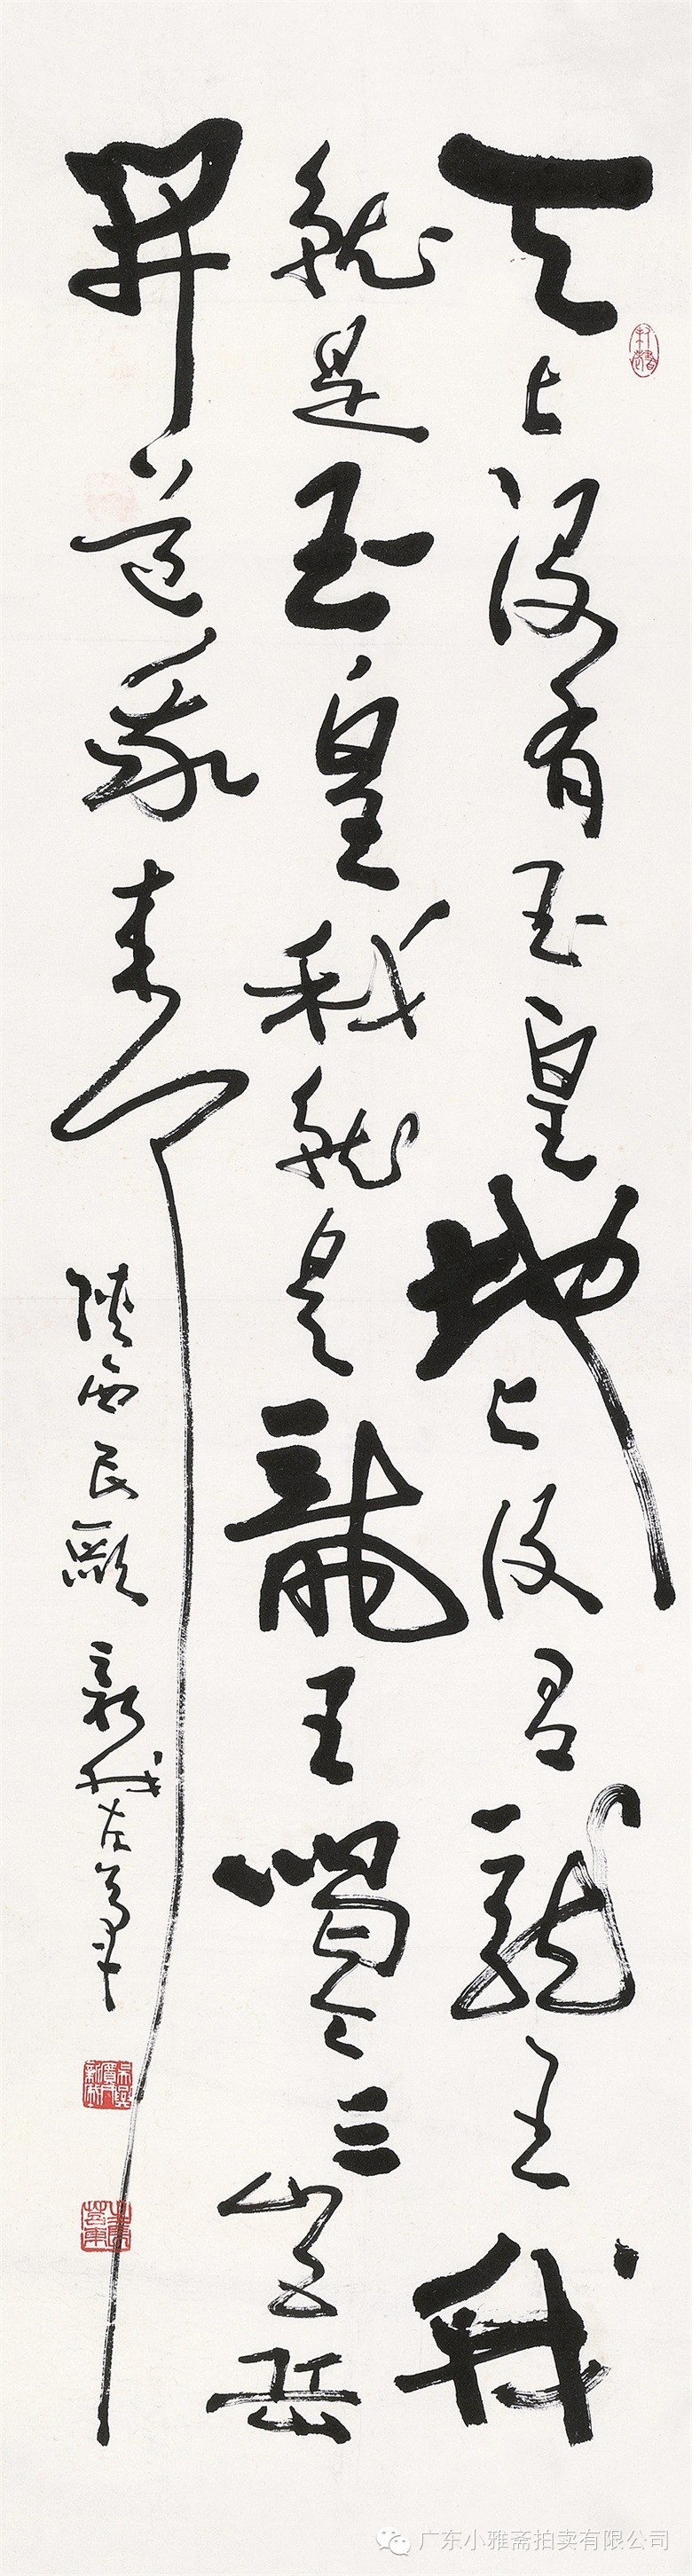 天上没有玉皇地上没有龙王我
就是玉皇我就是龍王喝令三山五岳
開道我来了
陕西民歌
广东小雅斋拍卖有限公司